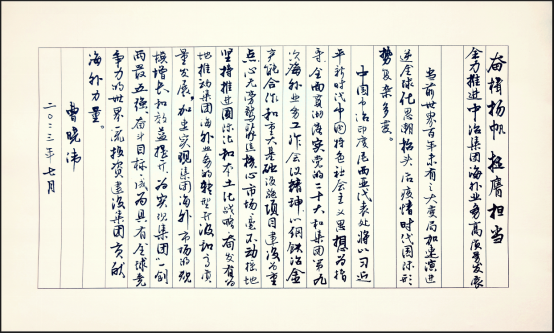 奋楫扬帆 挺膺担当
全力推进中冶集团海外业务高质量发展
当前世界百年未有之大变局加速演进
逆全球化思潮抬头后疫情时代国际形
势复杂多变。
中国中冶印度尼西亚代表处将以习近
平新时代中国特色社会主义思想为指
导,全面贯彻落实党的二十大和集团第九
次海外业务工作会议精神,以钢铁冶金
产能合作和重大基础设施项目建设为重
点,心无旁骛耕耘核心市场,毫不动摇地
坚持推进国际化和本土化战略,奋发有为
地推动集团海外业务的转型升级和高质
量发展,加速实现集团海外市场的规
模增长和效益提升,为实现集团“一创
两最五强”奋斗目标,成为具有全球竞
争力的世界一流投资建设集团贡献
海外力量。
曹晓伟
二〇二三年七月